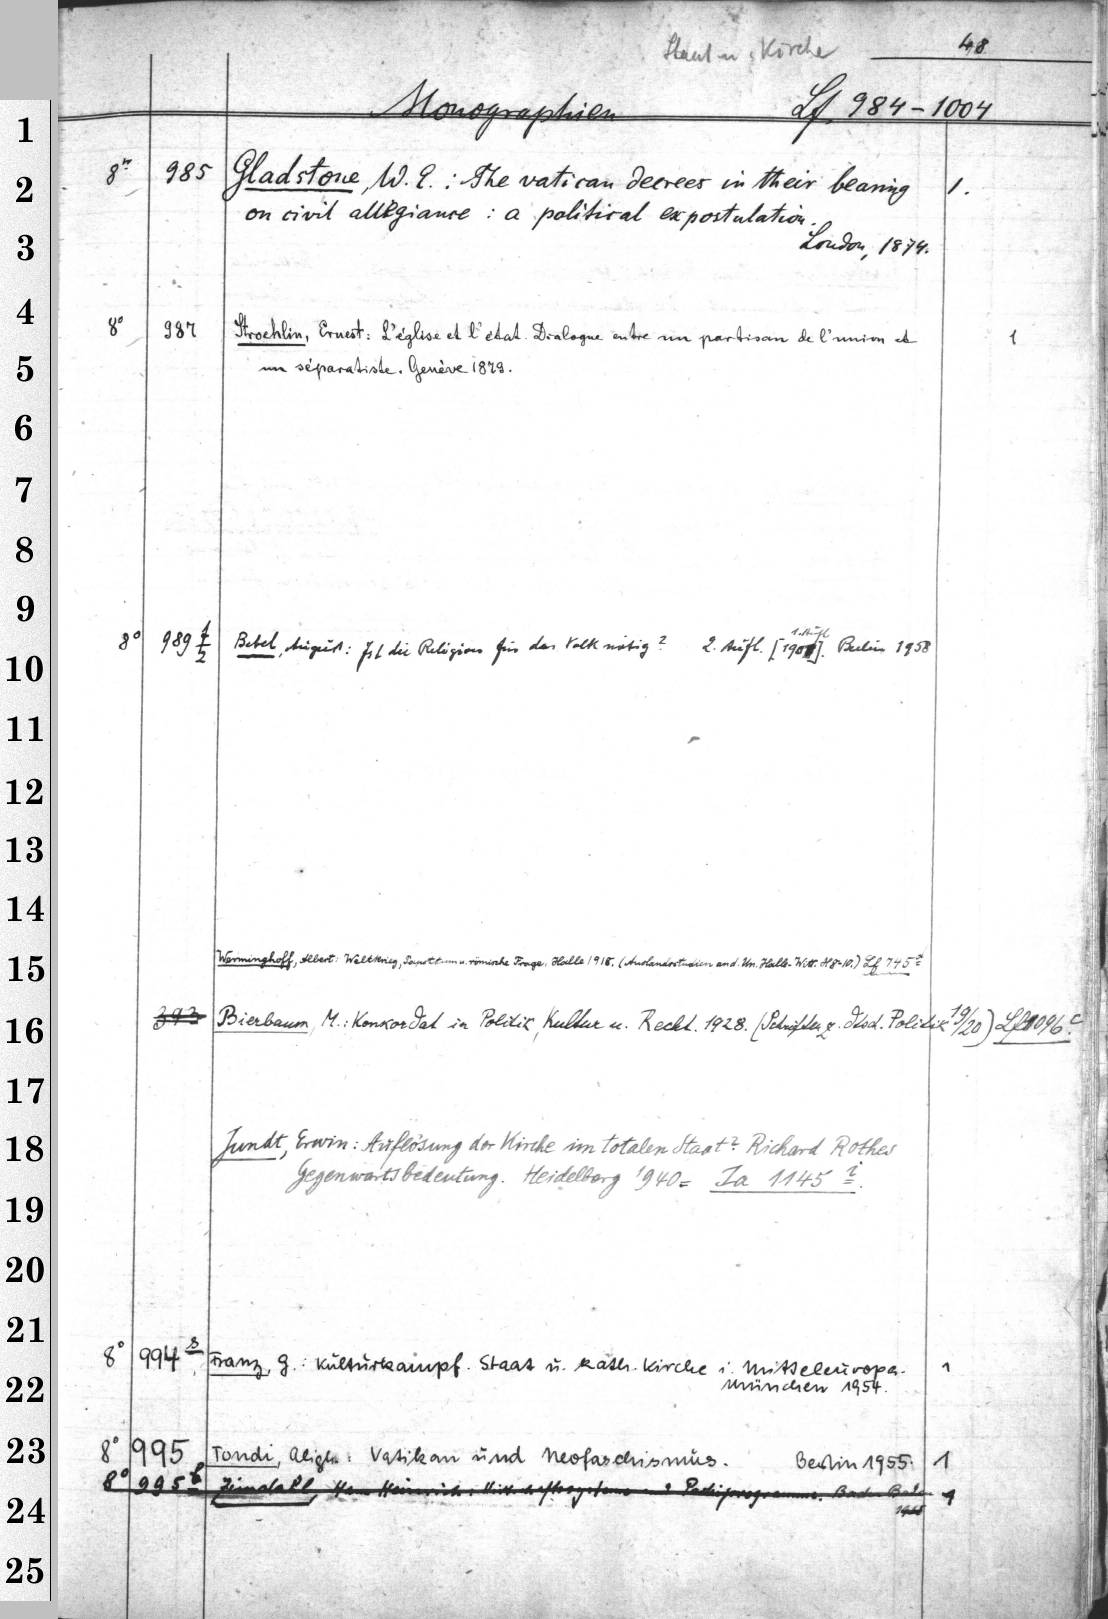 Staat u. Kirche 48
Monographien Lf 984-1004
8° 985 Gladstone, W. E.: The vatican decrees in their bearing 1.
on civil allegiance: a political expostulation.
London, 1874.
8° 987 Stroehlin, Ernest: L'église et l'état. Dialogue entre un partisan de l'union et 1
un séparatiste. Genève 1879.
1. Aufl
8° 989 1/2 Bebel, August: Ist die Religion für das Volk nötig? 2. Aufl. [1901]. Berlin 1958
Werminghoff, Albert: Weltkrieg, Papsttum u. römische Frage. Halle 1918. (Auslandsstudien and. Un. Halle-Witt. H 9-10.) Lf 745
393 Bierbaum, M.: Konkordat in Politik, Kultur u. Recht. 1928. (Schriften z. dtsch. Politik 19/20) Lf 1096 c.
Jundt, Erwin: Auflösung der Kirche im totalen Staat? Richard Rothes
Gegenwartsbedeutung. Heidelberg 1940 = Ia 1145 i.
8° 994 s Franz, G.: Kulturkampf. Staat u. kath. Kirche i. Mitteleuropa. 1
München 1954.
8° 995 Tondi, Aligh.: Vatikan und Neofaschismus. Berlin 1955. 1
8° 995 Heinrich: 1
1
2
3
4
5
6
7
8
9
10
11
12
13
14
15
16
17
18
19
20
21
22
23
24
25